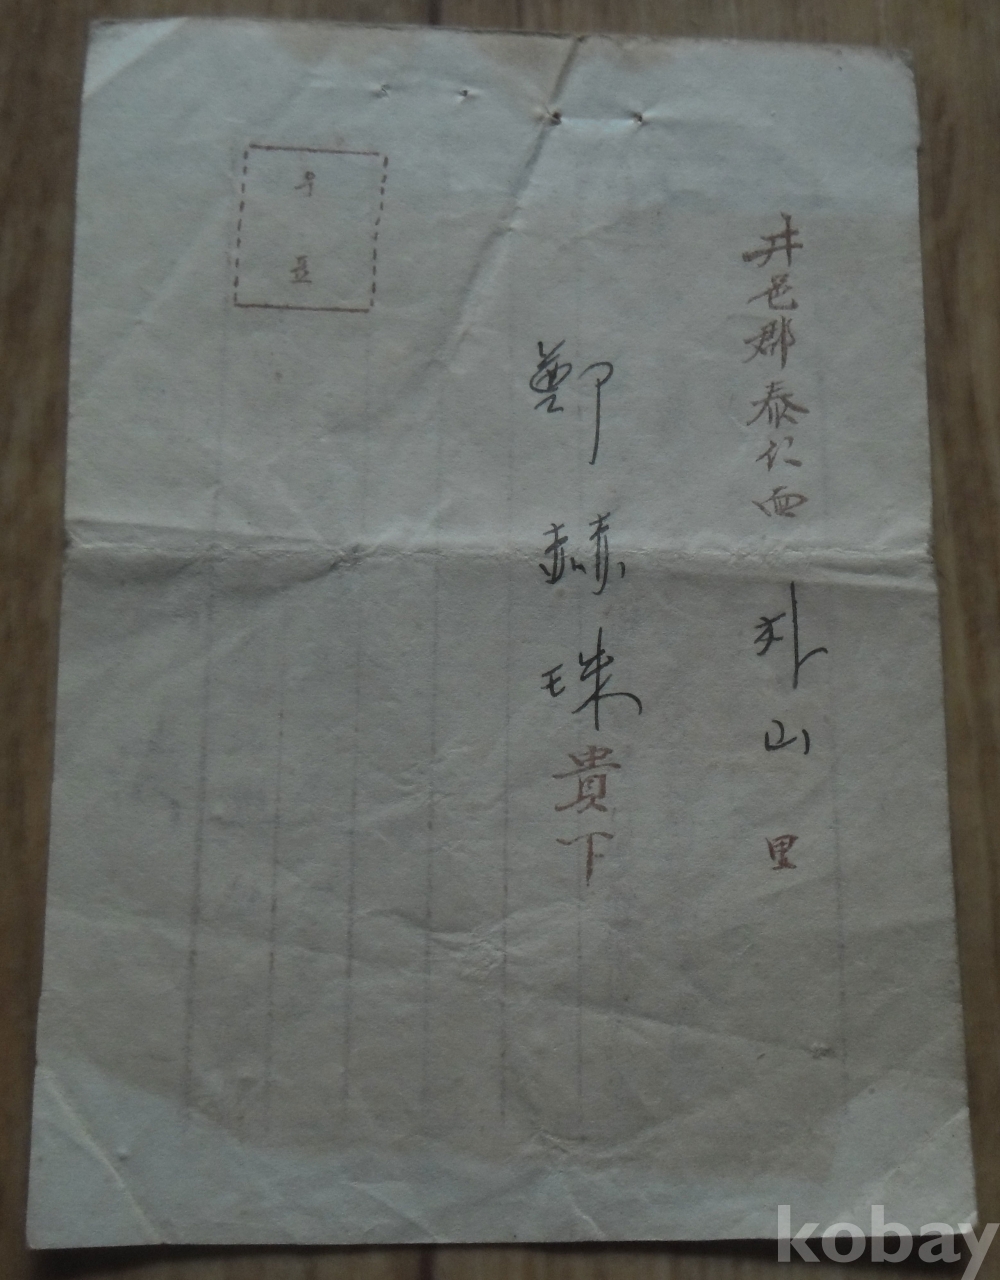 井邑郡泰仁面 外山 里
鄭赫珠貴下
우표
kobay